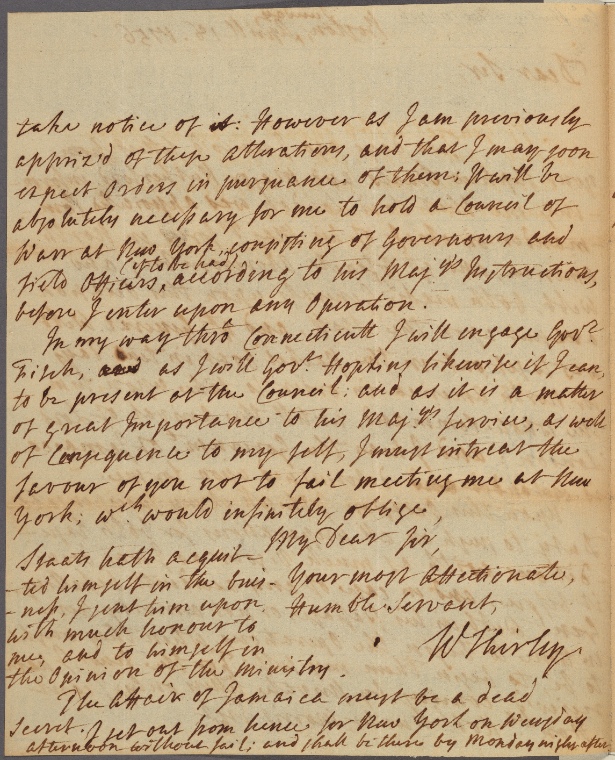 take notice of it: However as I am previously
appriz'd of these Alterations, and that I may soon
expect Orders in pursuance of them; It will be
absolutely necessary for me to hold a Council of
Warr at New York, consisting of Governours and
Field Officers, (if to be had) according to his Maj.tys Instructions,
before I enter upon any Operation.
In my way thro' Connecticutt I will engage Gov.r
Fitch, as I will Gov.r Hopkins likewise if I can,
to be present at the Council: and as it is a matter
of great Importance to his Maj.tys service, as well
of Consequence to my self, I must intreat the
favour of you not to fail meeting me at New
York; w.ch would infinitely oblige,
My Dear Sir,
Your most Affectionate,
Humble Servant,
W Shirley.
Staats hath acquit-
-ted himself in the busi-
-ness, I sent him upon,
with much honour to
me, and to himself in
the Opinion of the ministry.
The Affair of Jamaica must be a dead
secret. I set out from hence for New York on
afternoon without fail; and shall be there by Monday night after